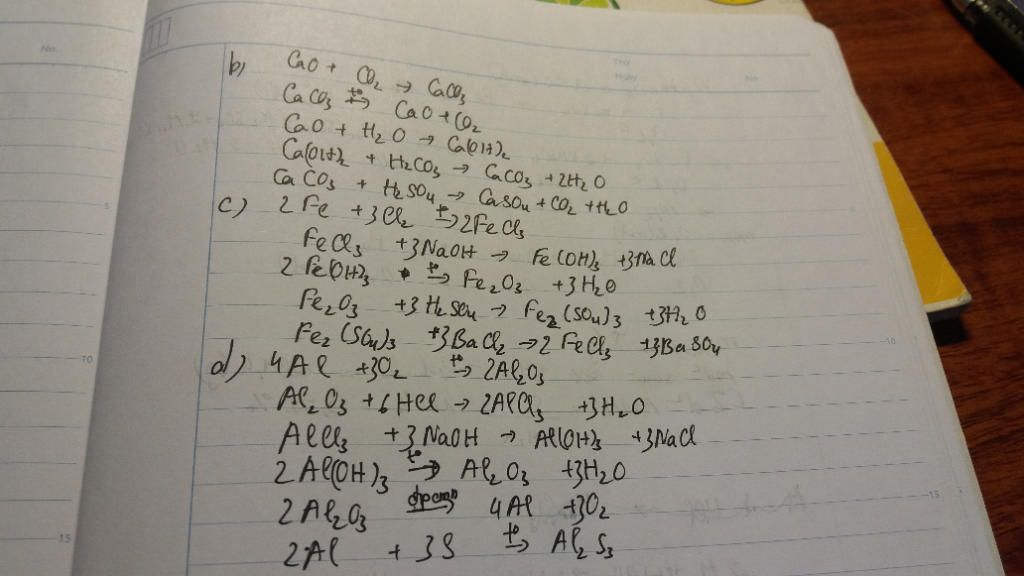 No.
Thứ
Ngày No.
b) CaO + CO2 → CaCO3
CaCO3 t°→ CaO + CO2
CaO + H2O → Ca(OH)2
Ca(OH)2 + H2CO3 → CaCO3 + 2H2O
CaCO3 + H2SO4 → CaSO4 + CO2 + H2O
c) 2Fe + 3Cl2 t°→ 2FeCl3
FeCl3 + 3NaOH → Fe(OH)3 + 3NaCl
2Fe(OH)3 t°→ Fe2O3 + 3H2O
Fe2O3 + 3H2SO4 → Fe2(SO4)3 + 3H2O
Fe2(SO4)3 + 3BaCl2 → 2FeCl3 + 3BaSO4
d) 4Al + 3O2 t°→ 2Al2O3
Al2O3 + 6HCl → 2AlCl3 + 3H2O
AlCl3 + 3NaOH → Al(OH)3 + 3NaCl
2Al(OH)3 t°→ Al2O3 + 3H2O
2Al2O3 đpcnn→ 4Al + 3O2
2Al + 3S t°→ Al2S3
5
10
15
10
15